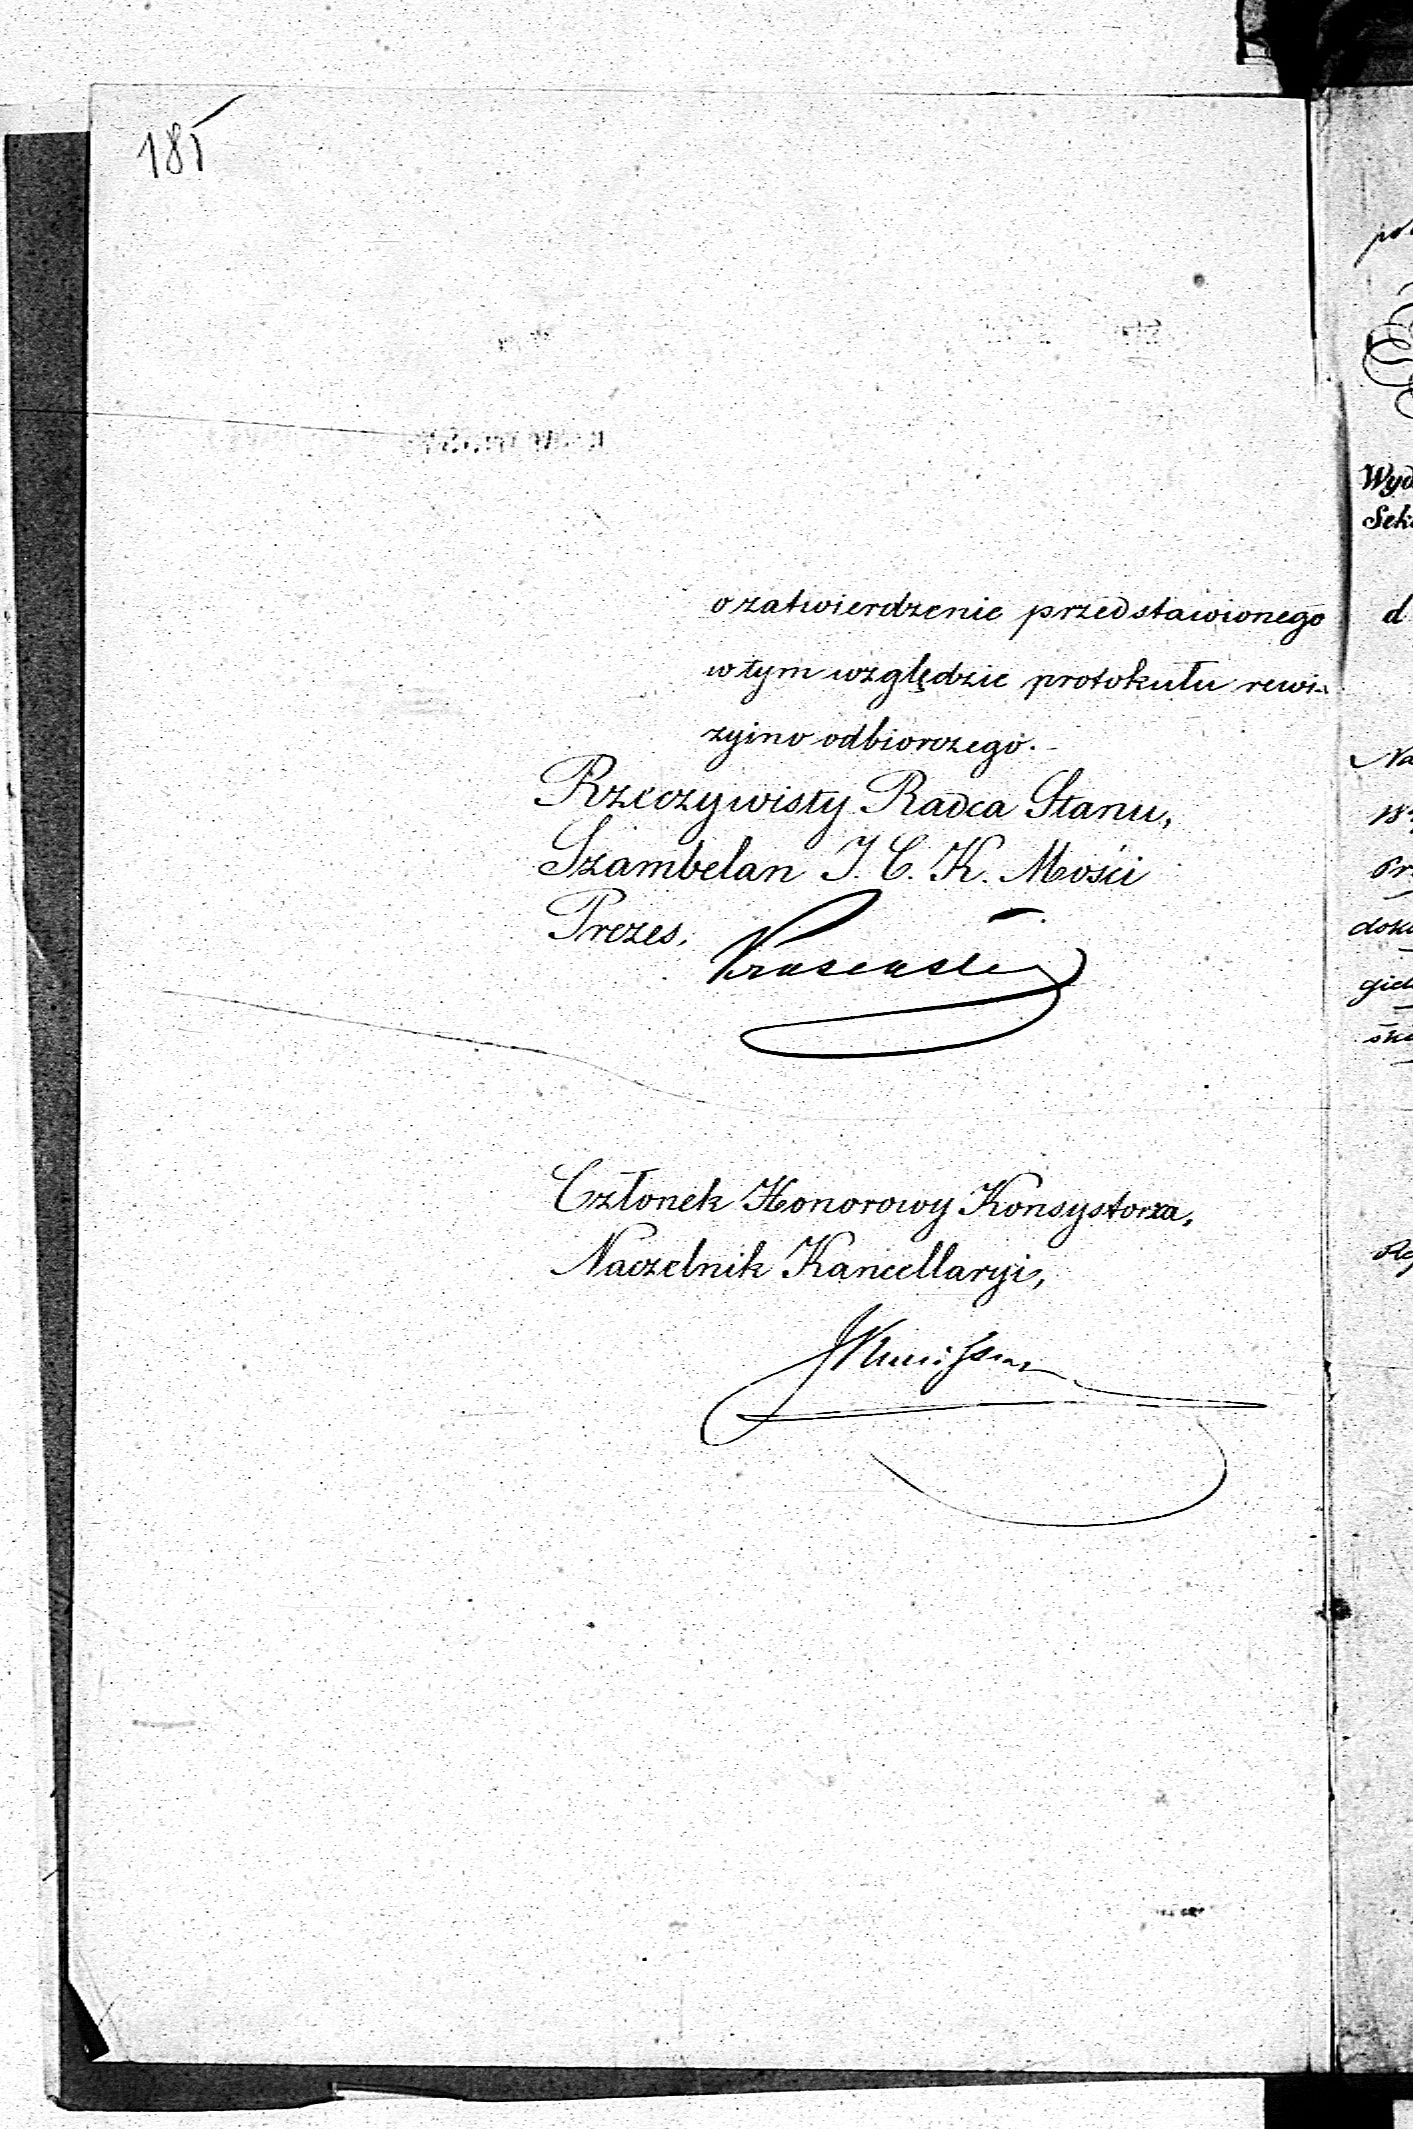 185
o zatwierdzenie przedstawionego
w tym względzie protokułu rewi-
zyino odbiorczego.-
Rzeczywisty Radca Stanu,
Szambelan J. C. K. Mości
Prezes,
Członek Honorowy Konsystorza,
Naczelnik Kancellaryi,